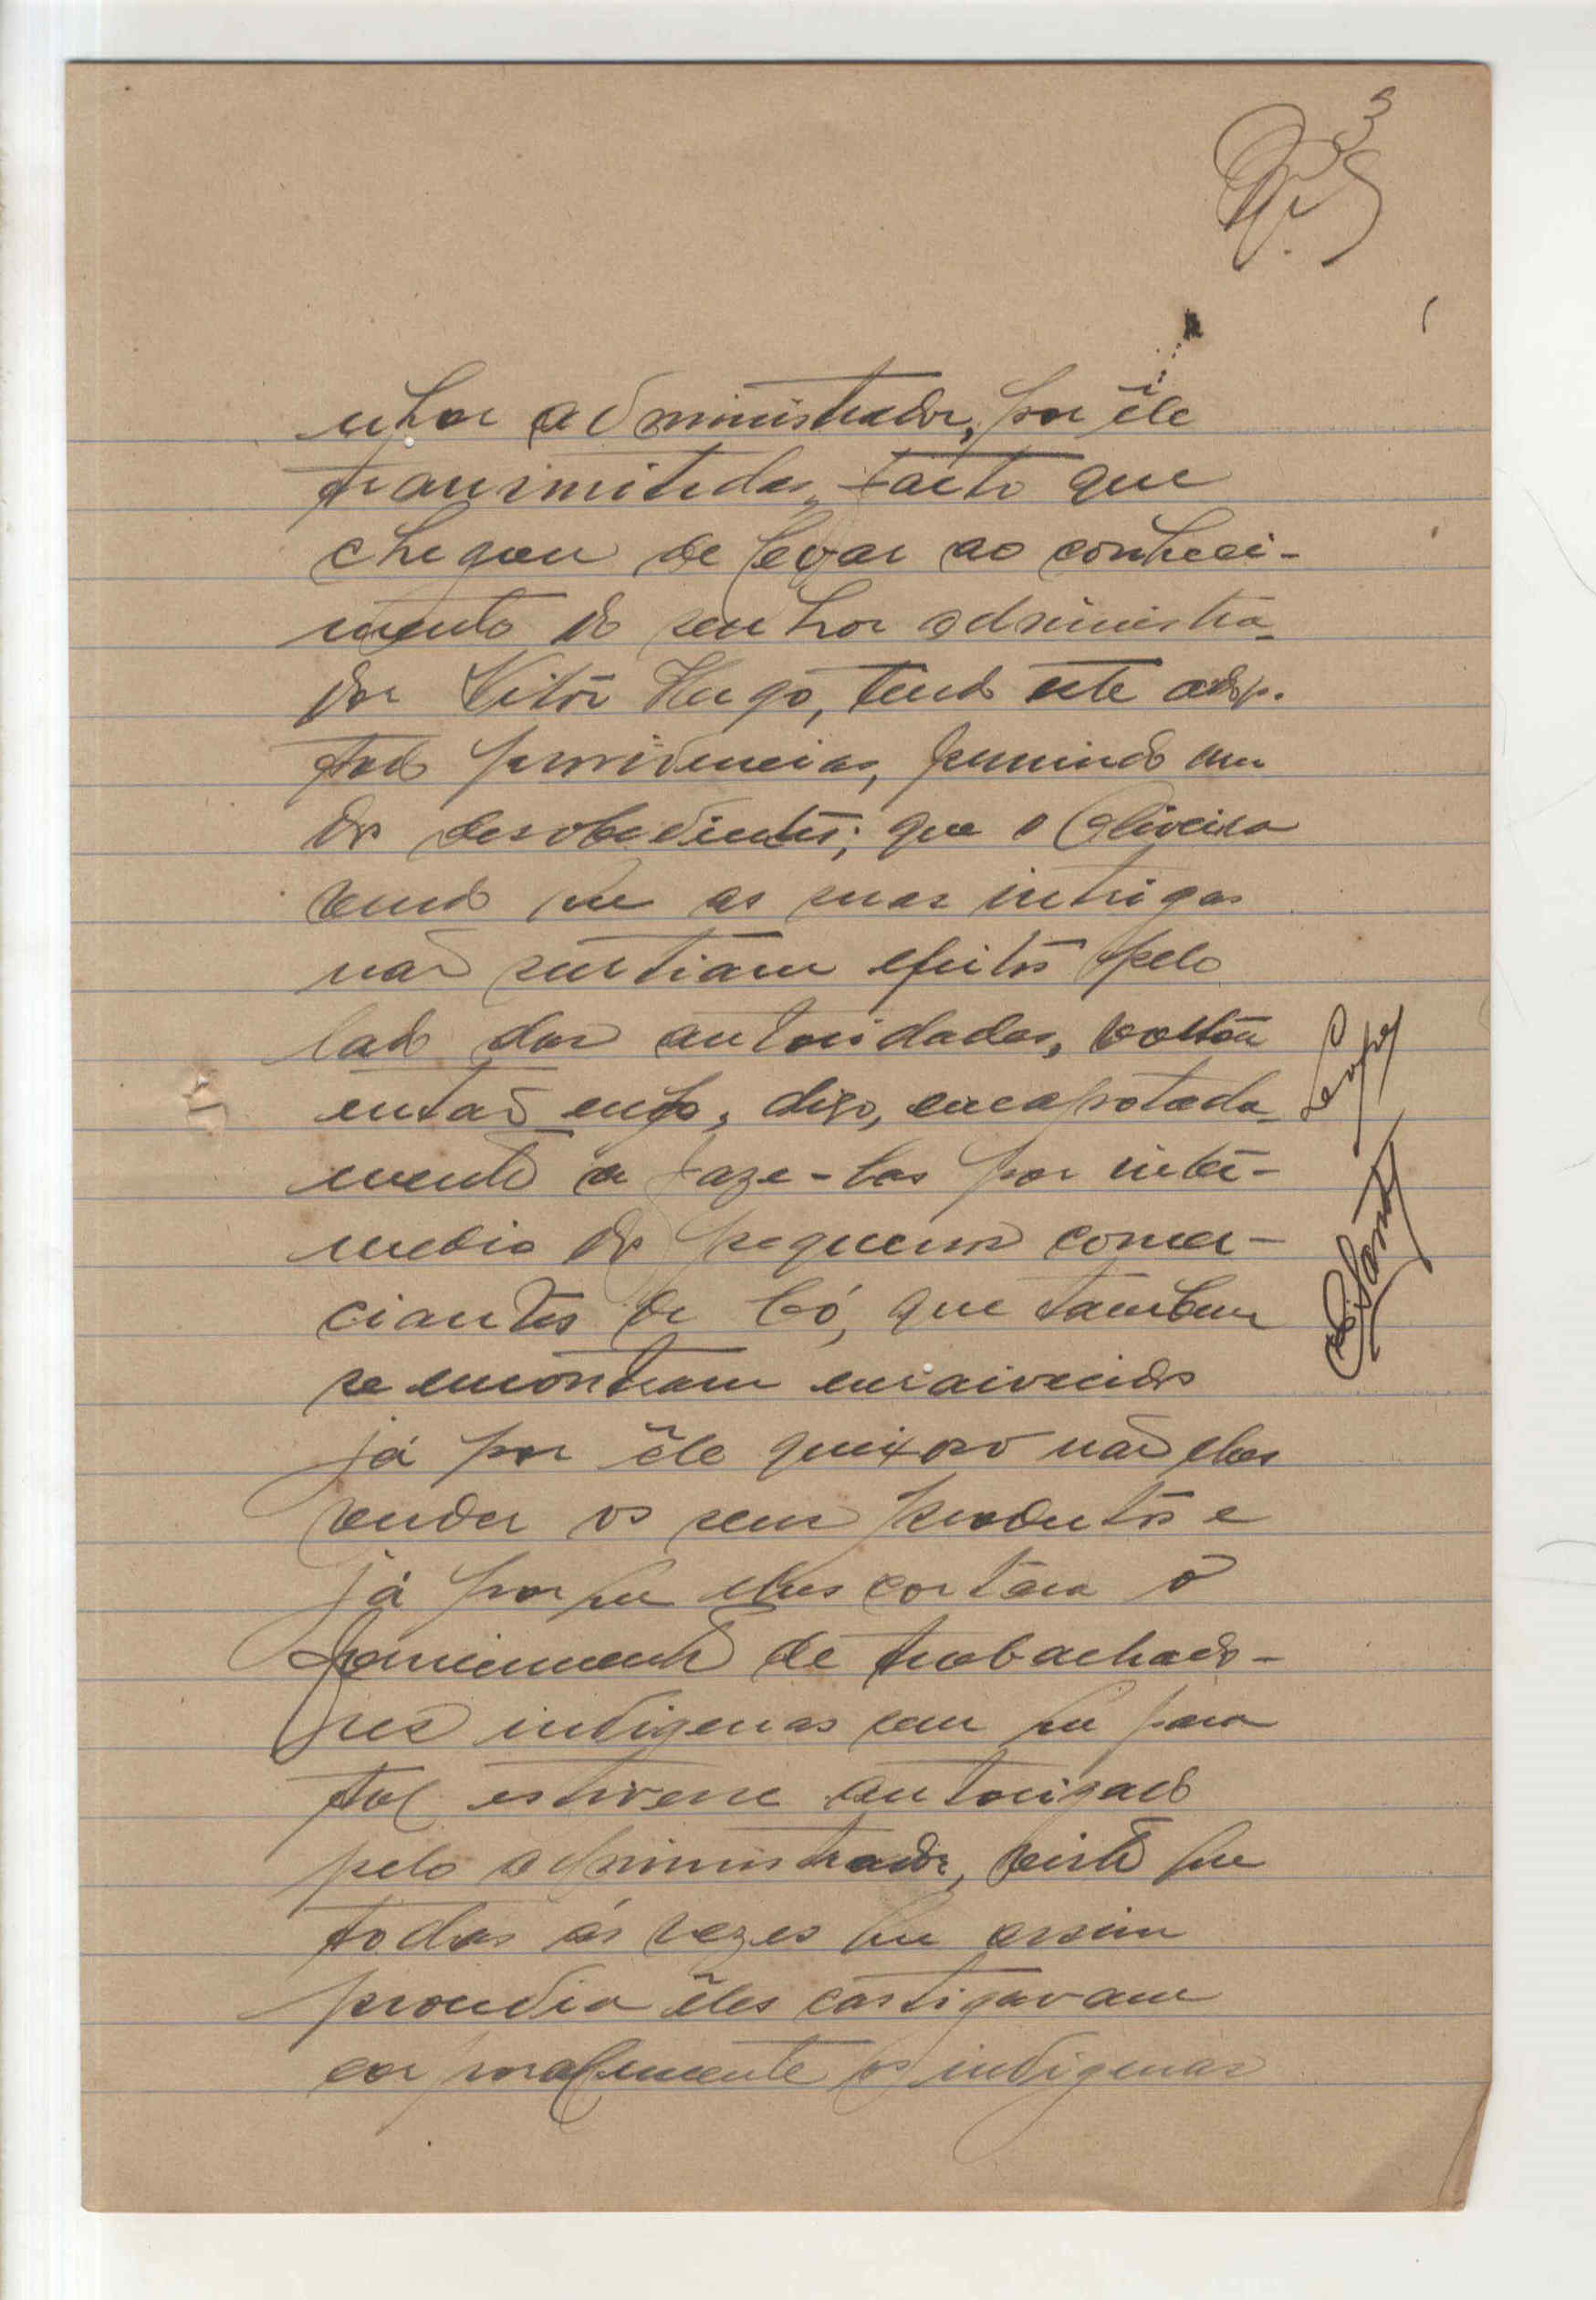 3
nhor administrador, por êle
transmitidas, facto que
chegou de levar ao conheci-
mento do senhor administra-
dor Vitôr Hugo, tendo este adop-
tado providencias, punindo um
dos desobedientes; que o Oliveira
vendo que as suas intrigas
não surtiam efeitos pelo
lado das autoridades, voltou
então digo, encapotada-
mente a faze-las por inter-
medio de pequenos comer-
ciantes de Có, que tambem
se encontram enraivecidos
já por êle queixoso não lhes
vender os seus produtos e
já porque lhes cortára o
fornecimento de trabalhado-
res indigenas sem que para
tal estivesse autorizado
pelo administrador, visto que
todas ás vezes que assim
procedia êles castigavam
corporalmente os indigenas